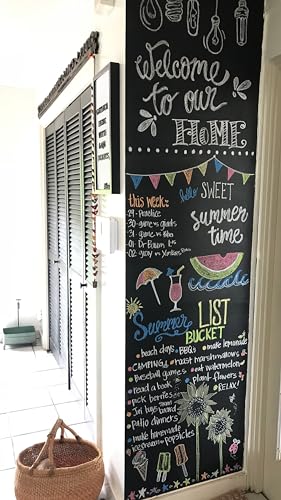 Welcome
to our
HOME
this week:
hello SWEET
summer
time
29 - Practice
30 - game vs giants
31 - game vs
01 - Dr
02 - vs
Summer
BUCKET
LIST
beach days
BBQs
make lemonade
CAMPING
roast marshmallows
baseball games
eat watermelon
read a book
plant flowers
pick berries
RELAX!
patio dinners
make homemade
icecream
popsicles